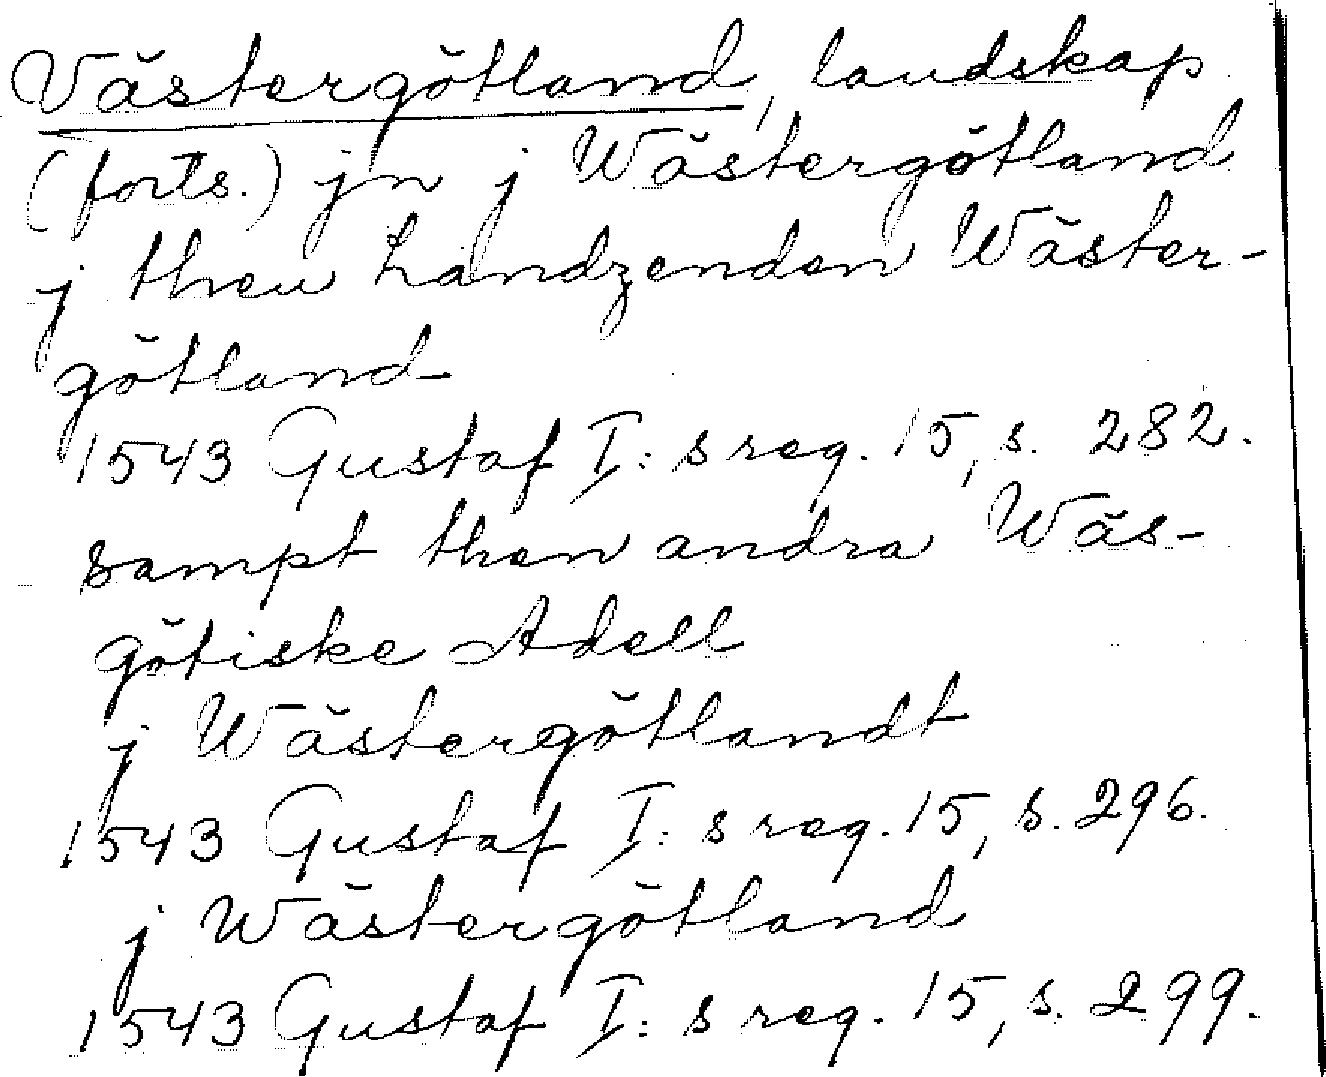 Västergötland, landskap
(forts.) jn j Wästergötland
j then Landzenden Wäster-
götland
1543 Gustaf I: s reg. 15, s. 282.
sampt then andra Wäs-
götiske Adell
j Wästergötlandt
1543 Gustaf I: s reg. 15, s. 296.
j Wästergötland
1543 Gustaf I: s reg. 15, s. 299.